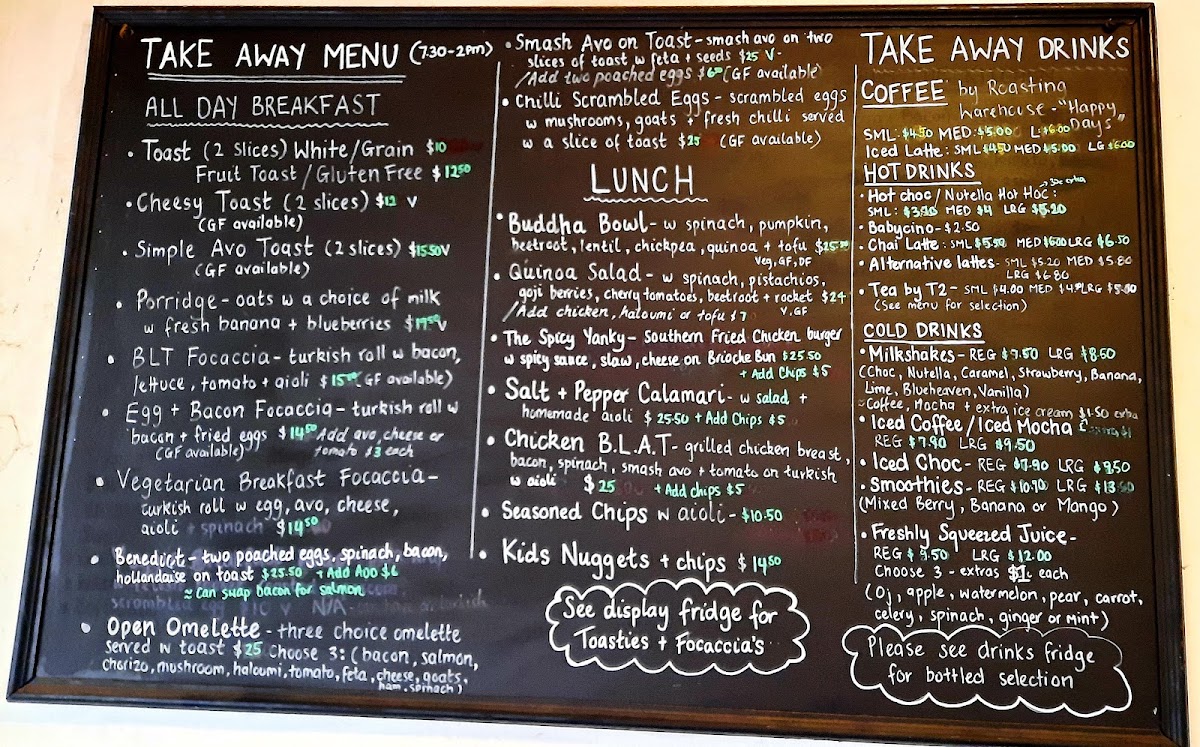 TAKE AWAY MENU (7.30-2pm)
ALL DAY BREAKFAST
• Toast (2 slices) White/Grain $10
Fruit Toast / Gluten Free $12⁵⁰
• Cheesy Toast (2 slices) $12 V
(GF available)
• Simple Avo Toast (2 slices) $15.50 V
(GF available)
• Porridge - oats w a choice of milk
w fresh banana + blueberries V
• BLT Focaccia - turkish roll w bacon,
lettuce, tomato + aioli (GF available)
• Egg + Bacon Focaccia - turkish roll w
bacon + fried eggs $14⁵⁰ Add avo, cheese or
(GF available) tomato $3 each
• Vegetarian Breakfast Focaccia -
turkish roll w egg, avo, cheese,
aioli + spinach $14⁵⁰
• Benedict - two poached eggs, spinach, bacon,
hollandaise on toast $25.50 + Add $6
≈ Can swap bacon for salmon
• Open Omelette - three choice omelette
served w toast $25 choose 3: (bacon, salmon,
chorizo, mushroom, haloumi, tomato, feta, cheese, goats,
ham, spinach)
• Smash Avo on Toast - smash avo on two
slices of toast w feta + seeds $25 V
/Add two poached eggs (GF available)
• Chilli Scrambled Eggs - scrambled eggs
w mushrooms, goats + fresh chilli served
w a slice of toast $25 (GF available)
LUNCH
• Buddha Bowl - w spinach, pumpkin,
beetroot, lentil, chickpea, quinoa + tofu
Veg, GF, DF
• Quinoa Salad - w spinach, pistachios,
goji berries, cherry tomatoes, beetroot + rocket $24
/Add chicken, haloumi or tofu $7 V, GF
• The Spicy Yanky - Southern Fried Chicken burger
w spicy sauce, slaw, cheese on Brioche Bun $25.50
+ Add Chips $5
• Salt + Pepper Calamari - w salad +
homemade aioli $25.50 + Add Chips $5
• Chicken B.L.A.T - grilled chicken breast,
bacon, spinach, smash avo + tomato on turkish
w aioli $25 + Add chips $5
• Seasoned Chips w aioli - $10.50
• Kids Nuggets + chips $14⁵⁰
See display fridge for
Toasties + Focaccia's
TAKE AWAY DRINKS
COFFEE by Roasting
Warehouse - "Happy
Days"
SML: $4.50 MED: $5.00 L: $6.00
Iced Latte: SML $4.50 MED $5.00 LG $6.00
HOT DRINKS
• Hot choc / Nutella Hot Hoc: 30c extra
SML: MED $4 LRG $5.20
• Babycino - $2.50
• Chai Latte: SML $5.50 MED $6.00 LRG $6.50
• Alternative lattes - SML $5.20 MED $5.80
LRG $6.80
• Tea by T2 - SML $4.00 MED LRG
(See menu for selection)
COLD DRINKS
• Milkshakes - REG LRG $8.50
(Choc, Nutella, Caramel, Strawberry, Banana,
Lime, Blueheaven, Vanilla)
Coffee, Mocha + extra ice cream $1.50 extra
• Iced Coffee / Iced Mocha
REG $7.90 LRG $9.50
• Iced Choc - REG $7.90 LRG $9.50
• Smoothies - REG $10.90 LRG
(Mixed Berry, Banana or Mango)
• Freshly Squeezed Juice -
REG $9.50 LRG $12.00
Choose 3 - extras each
(OJ, apple, watermelon, pear, carrot,
celery, spinach, ginger or mint)
Please see drinks fridge
for bottled selection